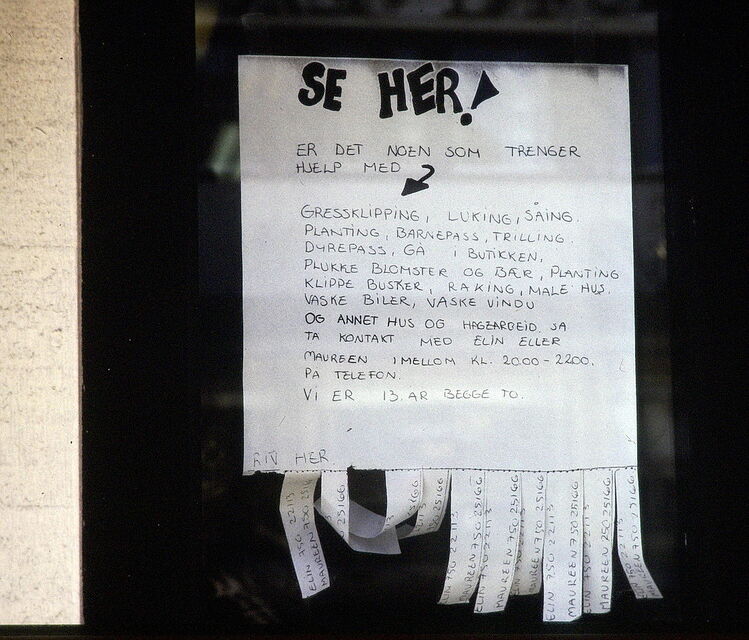 SE HER!
ER DET NOEN SOM TRENGER
HJELP MED
GRESSKLIPPING, LUKING, SÅING.
PLANTING, BARNEPASS, TRILLING.
DYREPASS, GÅ I BUTIKKEN,
PLUKKE BLOMSTER OG BÆR, PLANTING
KLIPPE BUSKER, RAKING, MALE HUS.
VASKE BILER, VASKE VINDU
OG ANNET HUS OG HAGEARBEID. SÅ
TA KONTAKT MED ELIN ELLER
MAUREEN IMELLOM KL. 20.00 - 22.00.
PÅ TELEFON.
VI ER 13 ÅR BEGGE TO.
RIV HER
ELIN 750 22113
MAUREEN 750 25166
25166
25166
ELIN 750 22113
MAUREEN 750 25166
ELIN 750 22113
MAUREEN 750 25166
ELIN 750 22113
MAUREEN 750 25166
ELIN 750 22113
MAUREEN 750 25166
ELIN 750 22113
MAUREEN 750 25166
ELIN 750 22113
MAUREEN 750 25166